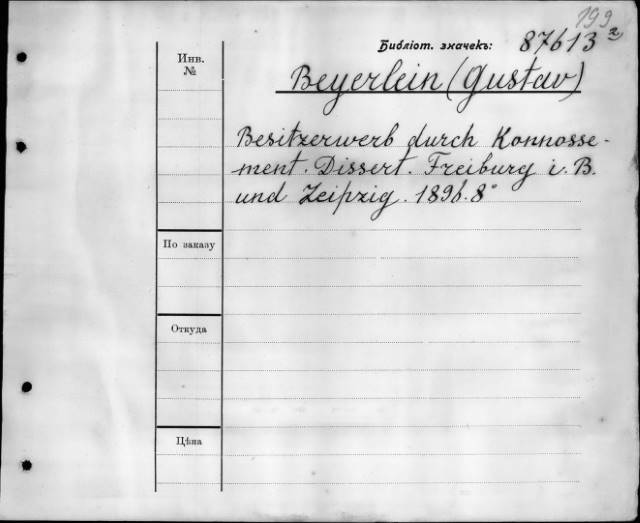 199
Библіот. значекъ: 87613²
Инв.
№
Beyerlein (Gustav)
Besitzerwerb durch Konnosse-
ment. Dissert. Freiburg i. B.
und Leipzig. 1896. 8°
По заказу
Откуда
Цѣна